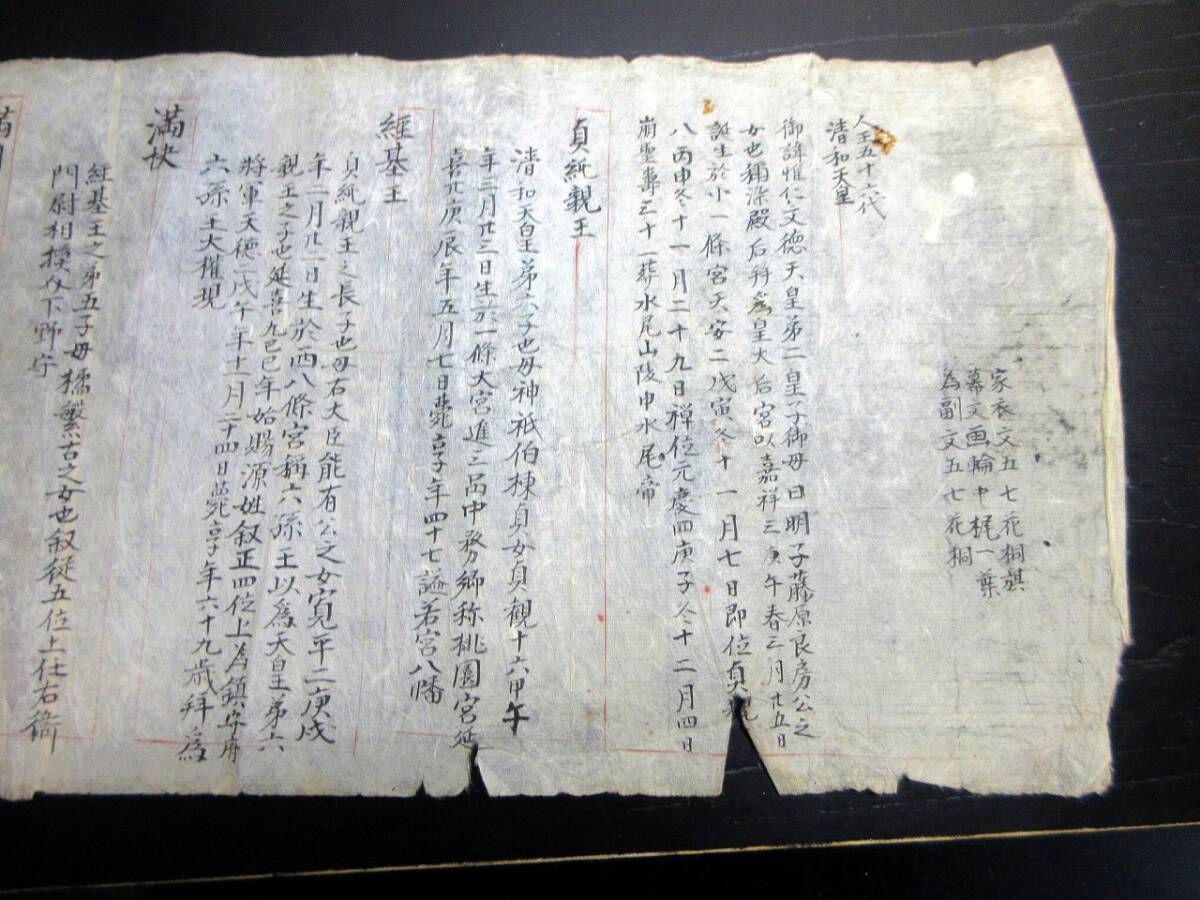 家衣文五七花桐旗
幕文画輪中梶一葉
為副文五七花桐
人王五十六代
清和天皇
御諱惟仁文徳天皇第二皇子御母曰明子藤原良房公之
女也稱染殿后拜為皇大后宮以嘉祥三庚午春三月廿五日
誕生於小一條宮天安二戊寅冬十一月七日即位貞観
八丙申冬十一月二十九日禅位元慶四庚子冬十二月四日
崩聖壽三十一葬水尾山陵申水尾帝
貞純親王
清和天皇第六子也母神祇伯棟貞女貞観十六甲午
年三月廿三日生於一條大宮進三品中務卿称桃園宮延
喜十六庚辰年五月七日薨享年四十七謚若宮八幡
經基王
貞純親王之長子也母右大臣能有公之女寛平二庚戌
年二月廿一日生於西八條宮稱六孫王以為天皇第六
親王之子也延喜九己巳年始賜源姓叙正四位上為鎮守府
将軍天徳二戊午年十一月二十四日薨享年六十九歳拜為
六孫王大権現
満快
經基王之第五子母橘繁古之女也叙従五位上仕右衛
門尉相模下野守
満